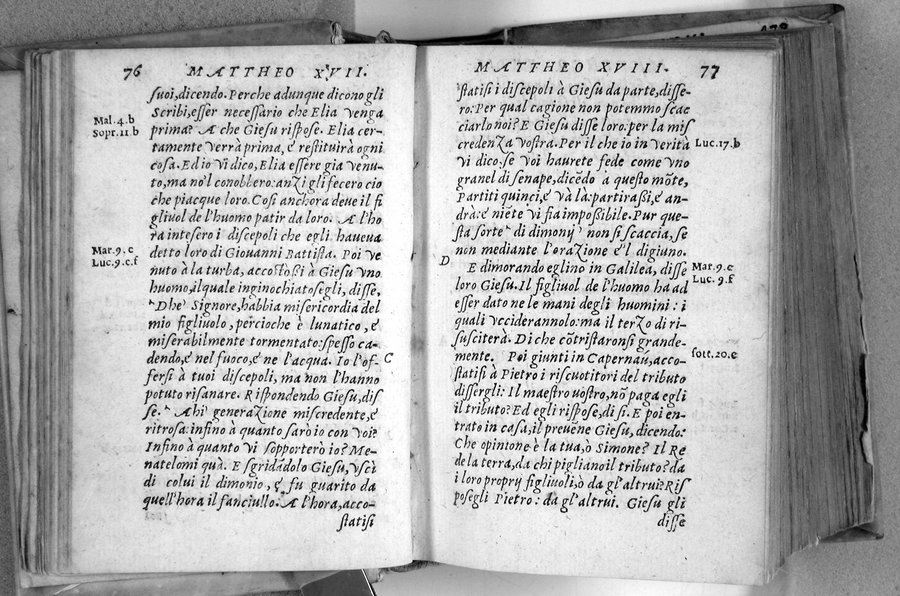 76 MATTHEO XVII.
suoi, dicendo. Perche adunque dicono gli
Scribi, esser necessario che Elia venga
Mal. 4. b
Sopr. 11. b
prima? A che Giesu rispose. Elia cer-
tamente verrà prima, e restituirà ogni
cosa. Ed io vi dico, Elia essere gia venu-
to, ma no'l conobbero: anzi gli fecero cio
che piacque loro. Cosi anchora deve il fi
gliuol de l'huomo patir da loro. A l'ho
ra intesero i discepoli che egli haueua
detto loro di Giouanni Battista. Poi ve
Mar. 9. c
Luc. 9. e. f
nuto à la turba, accostossi à Giesu vno
huomo, ilquale inginochiatosegli, disse.
Dhe Signore, habbia misericordia del
mio figliuolo, percioche è lunatico, e
miserabilmente tormentato: spesso ca-
dendo, e nel fuoco, e ne l'acqua. Io l'of-
C
fersi à tuoi discepoli, ma non l'hanno
potuto risanare. Rispondendo Giesu, dis
se. Ahi generazione miscredente, e
ritrosa: infino à quanto sarò io con voi?
Infino à quanto vi sopporterò io? Me-
natelomi quà. E sgridãdolo Giesu, vscì
di colui il dimonio, e fu guarito da
quell'hora il fanciullo. A l'hora, acco-
statisi
MATTHEO XVIII. 77
statisi i discepoli à Giesu da parte, disse-
ro: Per qual cagione non potemmo scac
ciarlo noi? E Giesu disse loro: per la mis
credenza vostra. Per il che io in verità
Luc. 17. b
vi dico: se voi haurete fede come vno
granel di senape, dicẽdo à questo mõte,
Partiti quinci, e và là: partirassi, e an-
drà: e niẽte vi fia impossibile. Pur que-
sta sorte di dimonij non si scaccia, se
non mediante l'orazione e'l digiuno.
D
E dimorando eglino in Galilea, disse
Mar. 9. e
Luc. 9. f
loro Giesu. Il figliuol de l'huomo ha ad
esser dato ne le mani degli huomini: i
quali vccideranno lo: ma il terzo di ri-
susciterà. Di che cõtristaronsi grande-
mente. Poi giunti in Capernaũ, acco-
sott. 20. c
statisi à Pietro i riscuotitori del tributo
dissergli: Il maestro vostro, nõ paga egli
il tributo? Ed egli rispose, di sì. E poi en-
trato in casa, il preuene Giesu, dicendo:
Che opintone è la tua, ò Simone? Il Re
de la terra, da chi pigliano il tributo? da
i loro proprij figliuoli, ò da gl'altrui? Ris
posegli Pietro: da gl'altrui. Giesu gli
disse